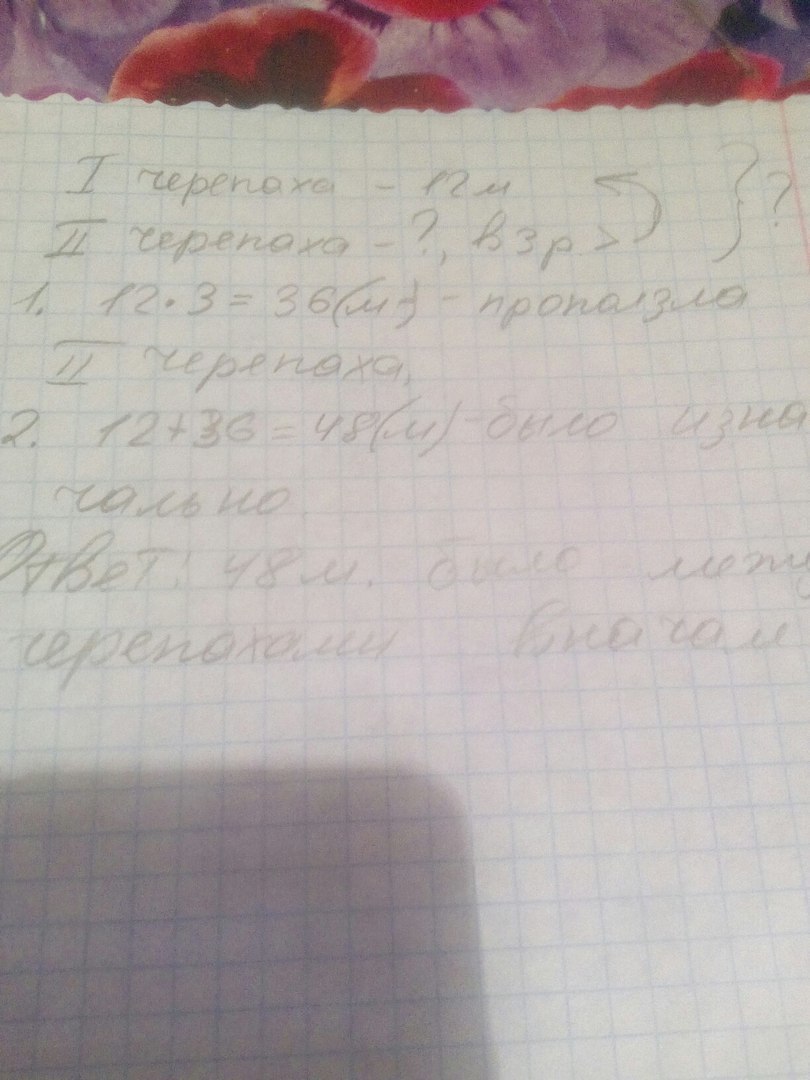 I черепаха - 12м
II черепаха - ?, в 3 р. > } ?
1. 12 · 3 = 36(м) - проползла
II черепаха.
2. 12+36 = 48(м) - было изна
чально
Ответ: 48 м. было меж
черепахами вначал